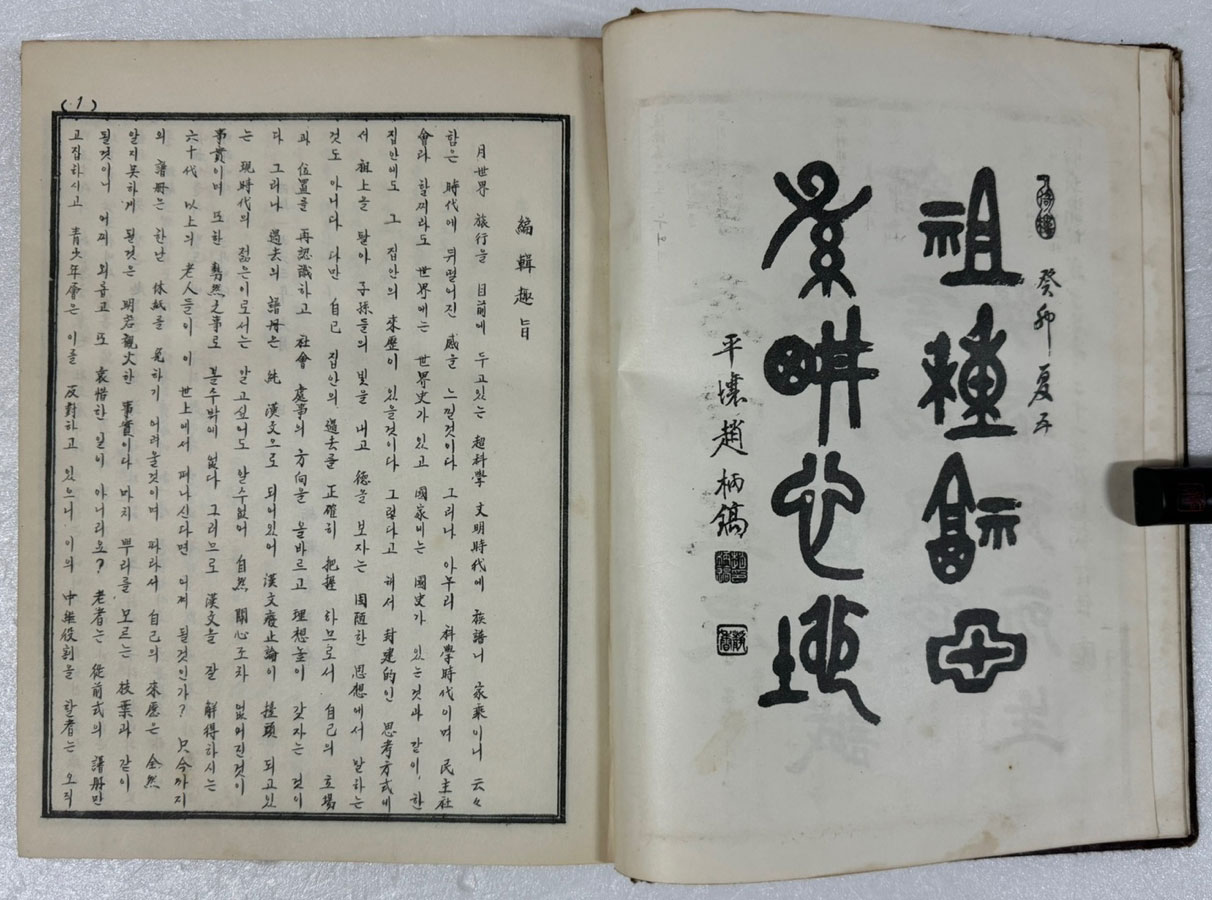 癸卯 夏五
祖種福田
孫耕心地
平壤趙柄鎬
編輯趣旨
月世界 旅行을 目前에 두고있는 超科學 文明時代에 族譜니 家乘이니 云々
함은 時代에 뒤떨어진 感을 느낄것이다 그러나 아무리 科學時代이며 民主社
會라 할찌라도 世界에는 世界史가 있고 國家에는 國史가 있는것과 같이, 한
집안에도 그 집안의 來歷이 있을것이다 그렇다고 해서 封建的인 思考方式에
서 祖上을 팔아 子孫들의 빛을 내고 德을 보자는 固陋한 思想에서 말하는
것도 아니다 다만 自己 집안의 過去를 正確히 把握 하므로서 自己의 立場
과 位置를 再認識하고 社會 處事의 方向을 올바르고 理想높이 갖자는 것이
다 그러나 過去의 譜册은 純 漢文으로 되어있어 漢文廢止論이 擡頭 되고있
는 現時代의 젊은이로서는 알고싶어도 알수없어 自然 關心조차 없어진것이
事實이며 또한 勢然之事로 볼수밖에 없다 그러므로 漢文을 잘 解得하시는
六十代 以上의 老人들이 이 世上에서 떠나신다면 어찌 될것인가? 只今까지
의 譜册는 한낱 休紙를 免하기 어려울것이며 따라서 自己의 來歷은 全然
알지못하게 될것은 明若觀火한 事實이다 마치 뿌리를 모르는 枝葉과 같이
될것이니 어찌 외롭고 또 哀惜한 일이 아니리요? 老者는 從前式의 譜册만
고집하시고 靑少年層은 이를 反對하고 있으니 이의 中繼役割을 할者는 오직
(1)